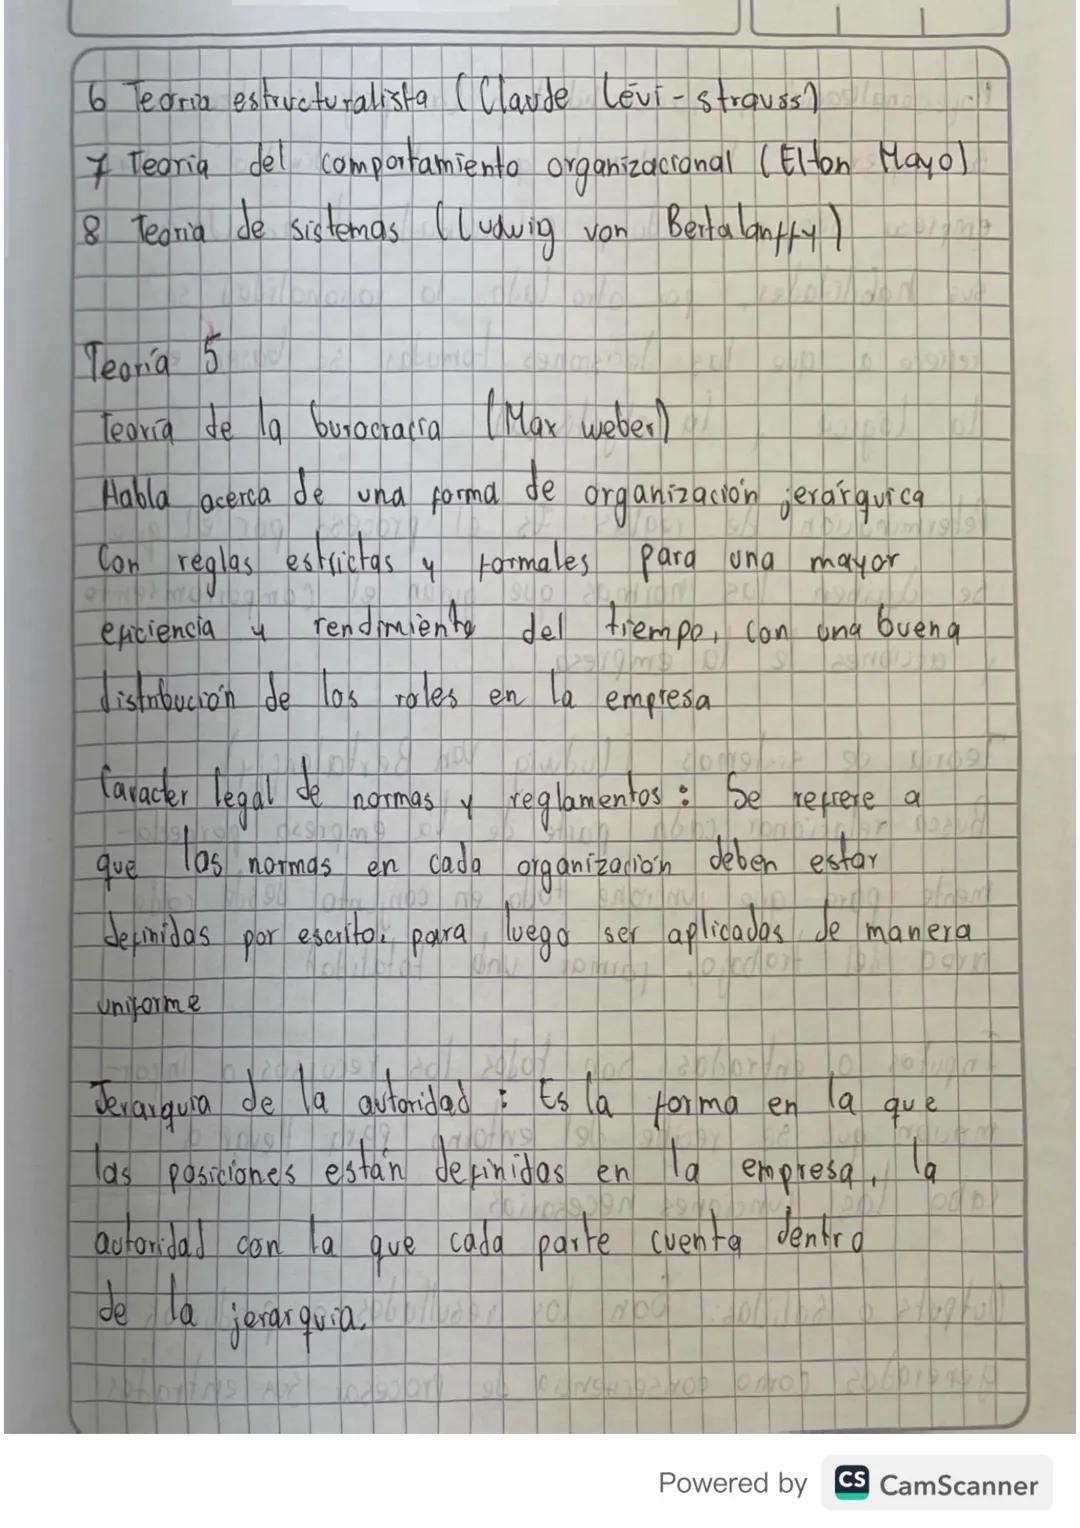 6 Teoria estructuralista (Claude Lévi-strauss)
7 Teoria del comportamiento organizacional (Elton Mayo)
8 Teoria de sistemas (Ludwig von Bertalanffy)
Teoría 5
Teoría de la burocracia (Max weber)
Habla acerca de una forma de organización jerárquica
Con reglas estrictas y formales para una mayor
eficiencia y rendimiento del tiempo, con una buena
distribución de los roles en la empresa
Caracter legal de normas y reglamentos: Se refiere a
que las normas en cada organización deben estar
definidas por escrito, para luego ser aplicadas de manera
uniforme
Jerarquia de la autoridad: Es la forma en la que
las posiciones están definidas en la empresa, la
autoridad con la que cada parte cuenta dentro
de la jerarquia.
Powered by CS CamScanner